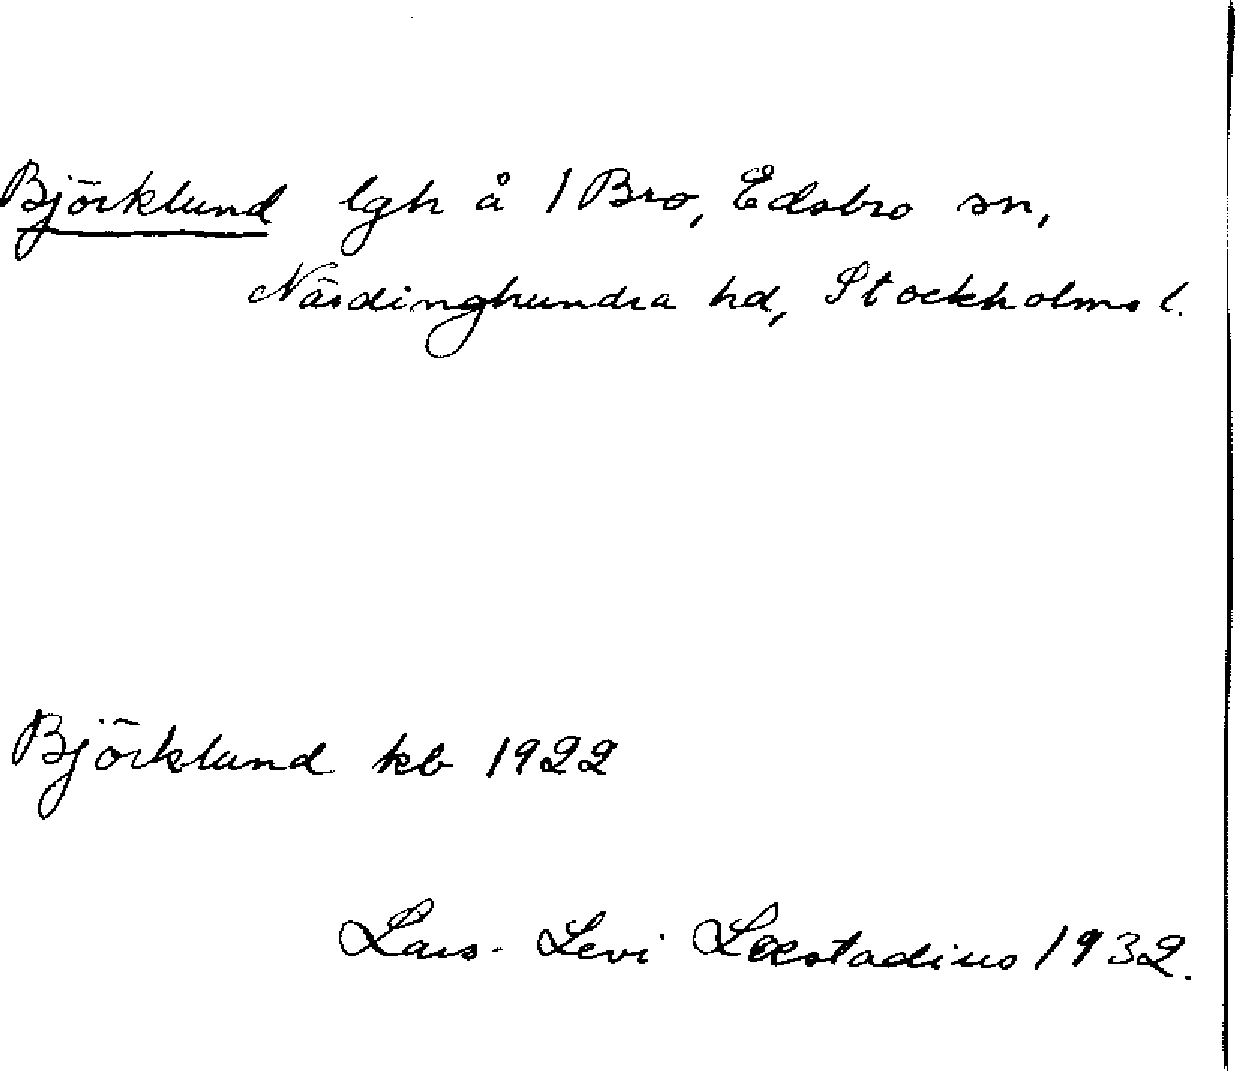 Björklund lgh å 1 Bro, Edsbro sn,
Närdinghundra hd, Stockholms l.
Björklund kb 1922
Lars-Levi Læstadius 1932.